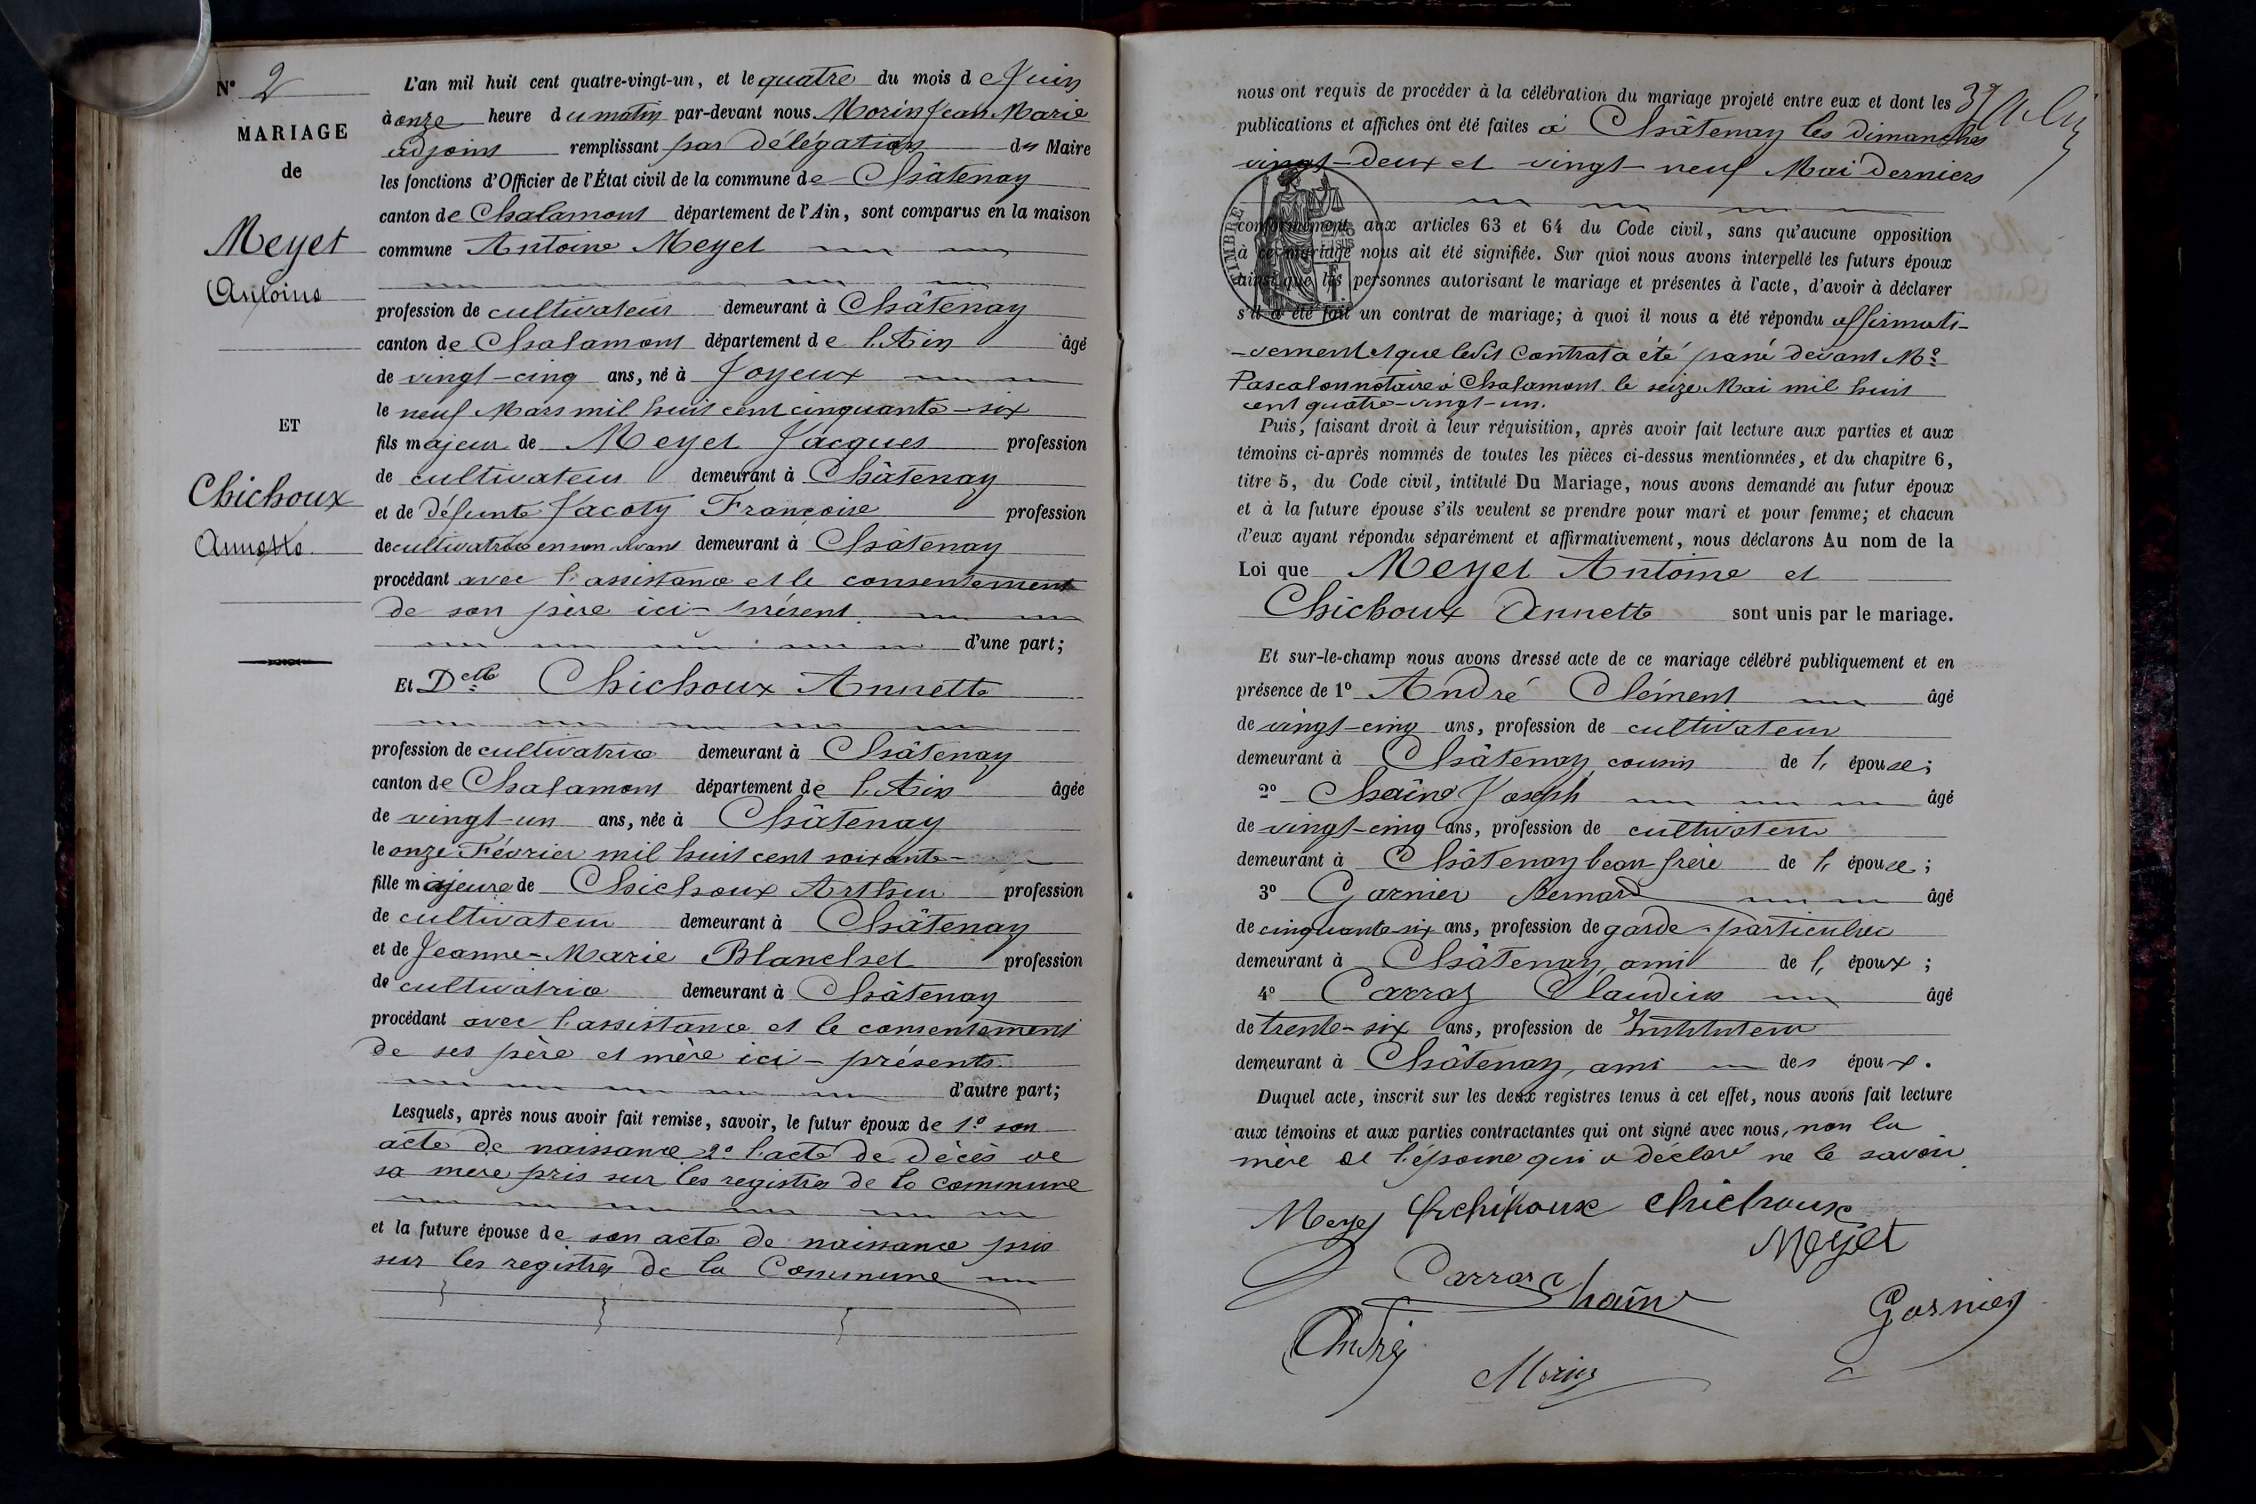 Nº 2
MARIAGE
de
Meyet
Antoine
ET
Chichoux
Annette
L'an mil huit cent quatre-vingt-un, et le quatre du mois de Juin
à onze heure du matin par-devant nous Morin Jean Marie
adjoint remplissant par délégation du Maire
les fonctions d'Officier de l'État civil de la commune de Châtenay
canton de Chalamont département de l'Ain, sont comparus en la maison
commune Antoine Meyet
profession de cultivateur demeurant à Châtenay
canton de Chalamont département de l'Ain âgé
de vingt-cinq ans, né à Joyeux
le neuf Mars mil huit cent cinquante-six
fils majeur de Meyet Jacques profession
de cultivateur demeurant à Châtenay
et de défunte Jacoty Françoise profession
de cultivatrice en son vivant demeurant à Châtenay
procédant avec l'assistance et le consentement
de son père ici-présent.
d'une part;
Et Delle Chichoux Annette
profession de cultivatrice demeurant à Châtenay
canton de Chalamont département de l'Ain âgée
de vingt-un ans, née à Châtenay
le onze Février mil huit cent soixante-
fille majeure de Chichoux Arthur profession
de cultivateur demeurant à Châtenay
et de Jeanne-Marie Blanchet profession
de cultivatrice demeurant à Châtenay
procédant avec l'assistance et le consentement
de ses père et mère ici-présents.
d'autre part;
Lesquels, après nous avoir fait remise, savoir, le futur époux de 1º son
acte de naissance 2º l'acte de décès de
sa mère pris sur les registres de la commune
et la future épouse de son acte de naissance pris
sur les registres de la Commune
nous ont requis de procéder à la célébration du mariage projeté entre eux et dont les
publications et affiches ont été faites à Châtenay les dimanches
vingt-deux et vingt-neuf Mai derniers
TIMBRE
conformément aux articles 63 et 64 du Code civil, sans qu'aucune opposition
à ce mariage nous ait été signifiée. Sur quoi nous avons interpellé les futurs époux
ainsi que les personnes autorisant le mariage et présentes à l'acte, d'avoir à déclarer
s'il a été fait un contrat de mariage; à quoi il nous a été répondu affirmati-
-vement et que ledit Contrat a été passé devant Me
Pascalon notaire à Chalamont le seize Mai mil huit
cent quatre-vingt-un.
Puis, faisant droit à leur réquisition, après avoir fait lecture aux parties et aux
témoins ci-après nommés de toutes les pièces ci-dessus mentionnées, et du chapitre 6,
titre 5, du Code civil, intitulé Du Mariage, nous avons demandé au futur époux
et à la future épouse s'ils veulent se prendre pour mari et pour femme; et chacun
d'eux ayant répondu séparément et affirmativement, nous déclarons Au nom de la
Loi que Meyet Antoine et
Chichoux Annette sont unis par le mariage.
Et sur-le-champ nous avons dressé acte de ce mariage célébré publiquement et en
présence de 1º André Clément âgé
de vingt-cinq ans, profession de cultivateur
demeurant à Châtenay cousin de l' épouse;
2º Chaîne Joseph âgé
de vingt-cinq ans, profession de cultivateur
demeurant à Châtenay beau-frère de l' épouse;
3º Garnier Bernard âgé
de cinquante-six ans, profession de garde-particulier
demeurant à Châtenay, ami de l' époux;
4º Carraz Claudius âgé
de trente-six ans, profession de Instituteur
demeurant à Châtenay, ami des époux.
Duquel acte, inscrit sur les deux registres tenus à cet effet, nous avons fait lecture
aux témoins et aux parties contractantes qui ont signé avec nous, non la
mère de l'épouse qui a déclaré ne le savoir.
Meyet chichoux
Meyet
Carraz Chaîne
Garnier
André
Morin